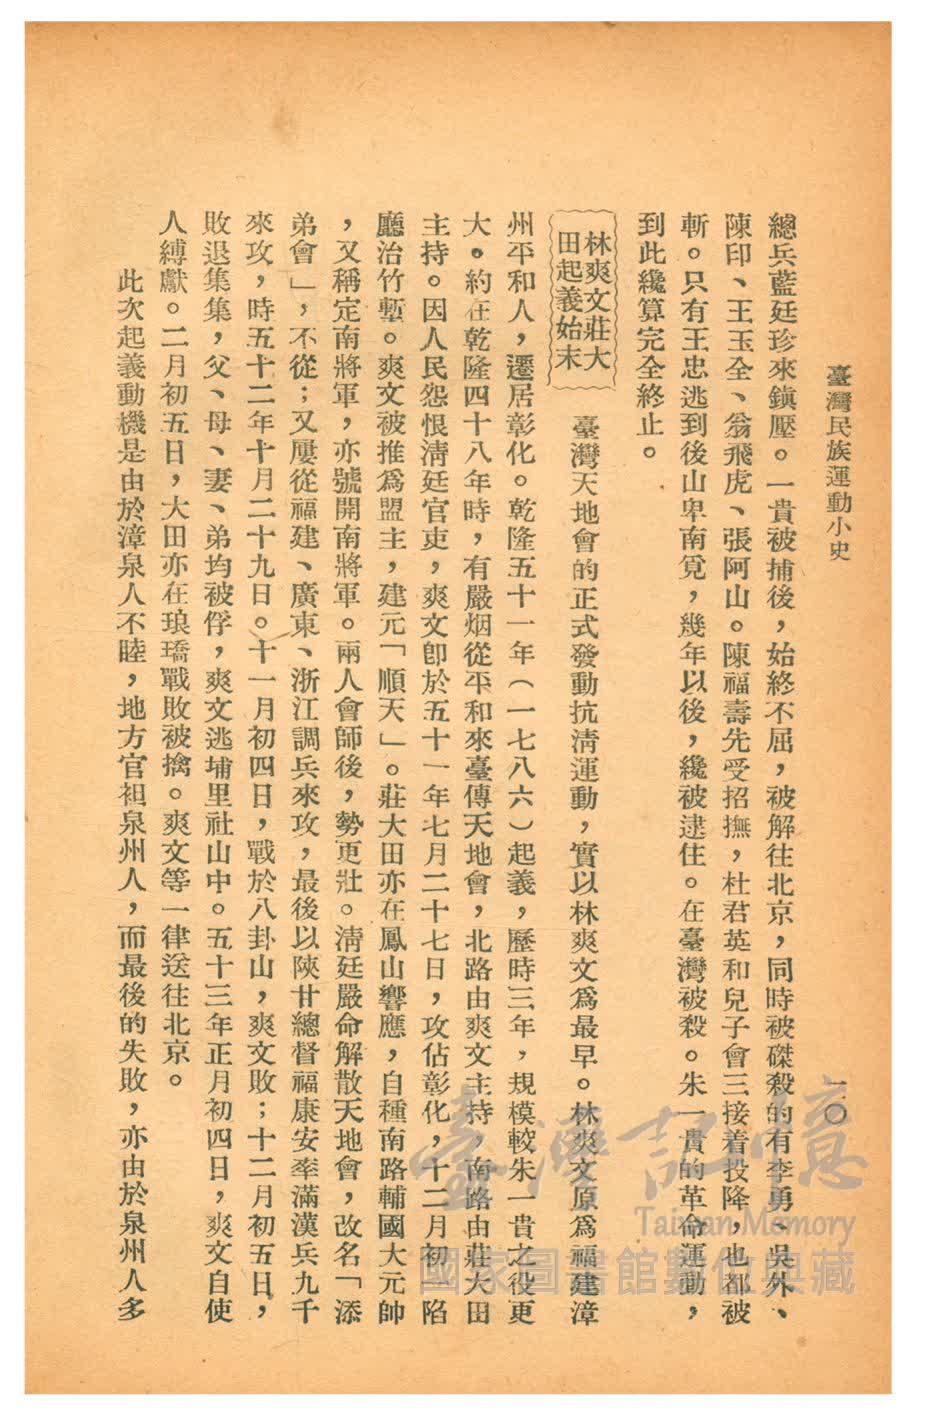 臺灣民族運動小史
二〇
總兵藍廷珍來鎮壓。一貴被捕後，始終不屈，被解往北京，同時被磔殺的有李勇、吳外、
陳印、王玉全、翁飛虎、張阿山。陳福壽先受招撫，杜君英和兒子會三接着投降，也都被
斬。只有王忠逃到後山卑南覓，幾年以後，纔被逮住。在臺灣被殺。朱一貴的革命運動，
到此纔算完全終止。
林爽文莊大
田起義始末
臺灣天地會的正式發動抗淸運動，實以林爽文爲最早。林爽文原爲福建漳
州平和人，遷居彰化。乾隆五十一年（一七八六）起義，歷時三年，規模較朱一貴之役更
大。約在乾隆四十八年時，有嚴烟從平和來臺傳天地會，北路由爽文主持，南路由莊大田
主持。因人民怨恨淸廷官吏，爽文卽於五十一年七月二十七日，攻佔彰化，十二月初一陷
廳治竹塹。爽文被推爲盟主，建元「順天」。莊大田亦在鳳山響應，自種南路輔國大元帥
，又稱定南將軍，亦號開南將軍。兩人會師後，勢更壯。淸廷嚴命解散天地會，改名「添
弟會」，不從；又屢從福建、廣東、浙江調兵來攻，最後以陝甘總督福康安率滿漢兵九千
來攻，時五十二年十月二十九日。十一月初四日，戰於八卦山，爽文敗；十二月初五日，
敗退集集，父、母、妻、弟均被俘，爽文逃埔里社山中。五十三年正月初四日，爽文自使
人縛獻。二月初五日，大田亦在琅璚戰敗被擒。爽文等一律送往北京。
此次起義動機是由於漳泉人不睦，地方官袒泉州人，而最後的失敗，亦由於泉州人多
臺灣記憶
Taiwan Memory
國家圖書館數位典藏